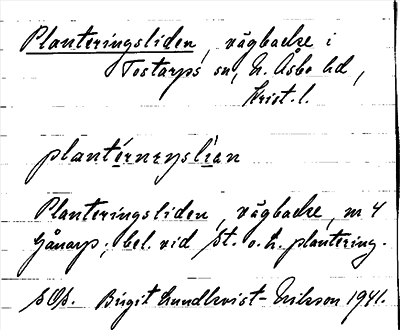 Planteringsliden, vägbacke i
Tostarps sn, N. Åsbo hd,
Krist. l.
plantérneŋslian
Planteringsliden, vägbacke, nr 4
Gånarp; bel. vid St. o. L. plantering.
Birgit Lundkvist-Eriksson 1941.